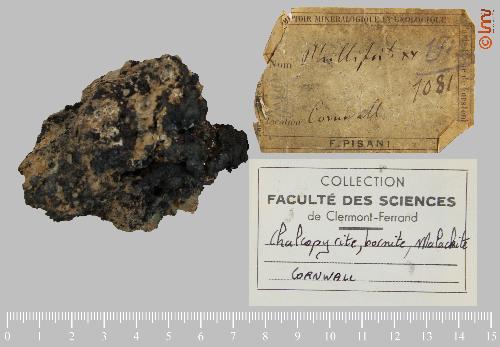 COMPTOIR MINERALOGIQUE ET GEOLOGIQUE
Nom Phillipsite xx
1081
Location Cornwall
F. PISANI
COLLECTION
FACULTÉ DES SCIENCES
de Clermont-Ferrand
Chalcopyrite, bornite, Malachite
CORNWALL
0 1 2 3 4 5 6 7 8 9 10 11 12 13 14 15